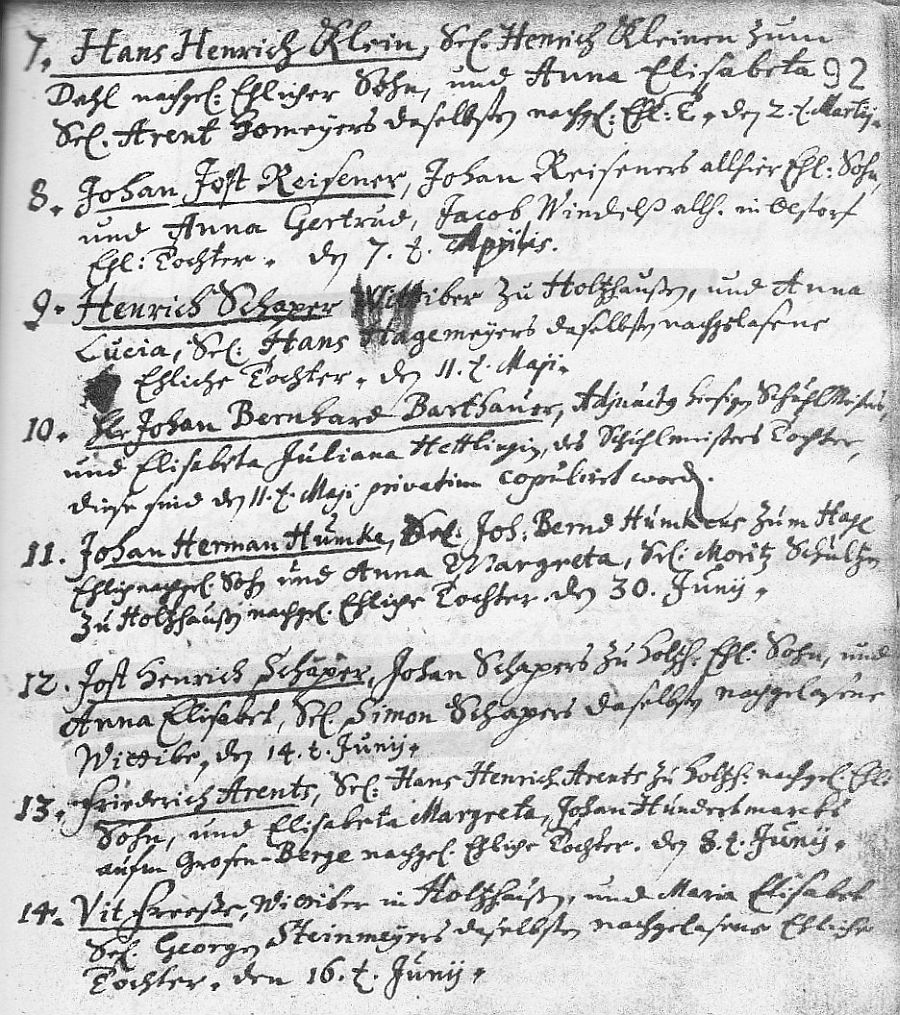 7. Hans Henrich Klein, Sel. Henrich Kleinen zum
92
Dahl nachgel: Ehlicher Sohn, und Anna Elisabeta
Sel. Arent Bomeyers daselbsten nachgel: Ehl: T. den 2. t. Martij.
8. Johan Jost Reisener, Johan Reiseners allhier Ehl: Sohn,
und Anna Gertrud, Jacob Windelß allh. in
Ehl: Tochter. den 7. t. Aprilis.
9. Henrich Schaper Wittiber zu Holtzhaußen, und Anna
Lucia, Sel: Hans Hagemeyers daselbsten nachgelasene
Ehliche Tochter. den 11. t. Maji.
10. Hr Johan Bernhard Barthauer, Adjunctg hiesigen Schuhlmeisters,
und Elisabeta Juliana Hettlingin, des Schuhlmeisters Tochter,
diese sind den 11. t. Maji privatim copuliret word.
11. Johan Herman Humke, Sel: Joh: Bernd Humkens zum
Ehlig nachgel. Sohn und Anna Margreta, Sel: Moritz Schultzen
zu Holtzhaußen nachgel. Ehliche Tochter. den 30. Junij.
12. Jost Henrich Schaper, Johan Schapers zu Holtzh. Ehl: Sohn, und
Anna Elisabet, Sel. Simon Schapers daselbsten nachgelasene
Wittibe, den 14. t. Junij.
13. Friederich Arents, Sel: Hans Henrich Arents zu Holtzh: nachgel: Ehl:
Sohn, und Elisabeta Margreta, Johan Hundertmarcks
aufm Grosen-Berge nachgel. Ehliche Tochter. den 8. t. Junij.
14. Vit Freeße, Wittiber in Holtzhaußen, und Maria Elisabet
Sel. Georgen Steinmeyers daselbsten nachgelasene Ehliche
Tochter. den 16. t. Junij.